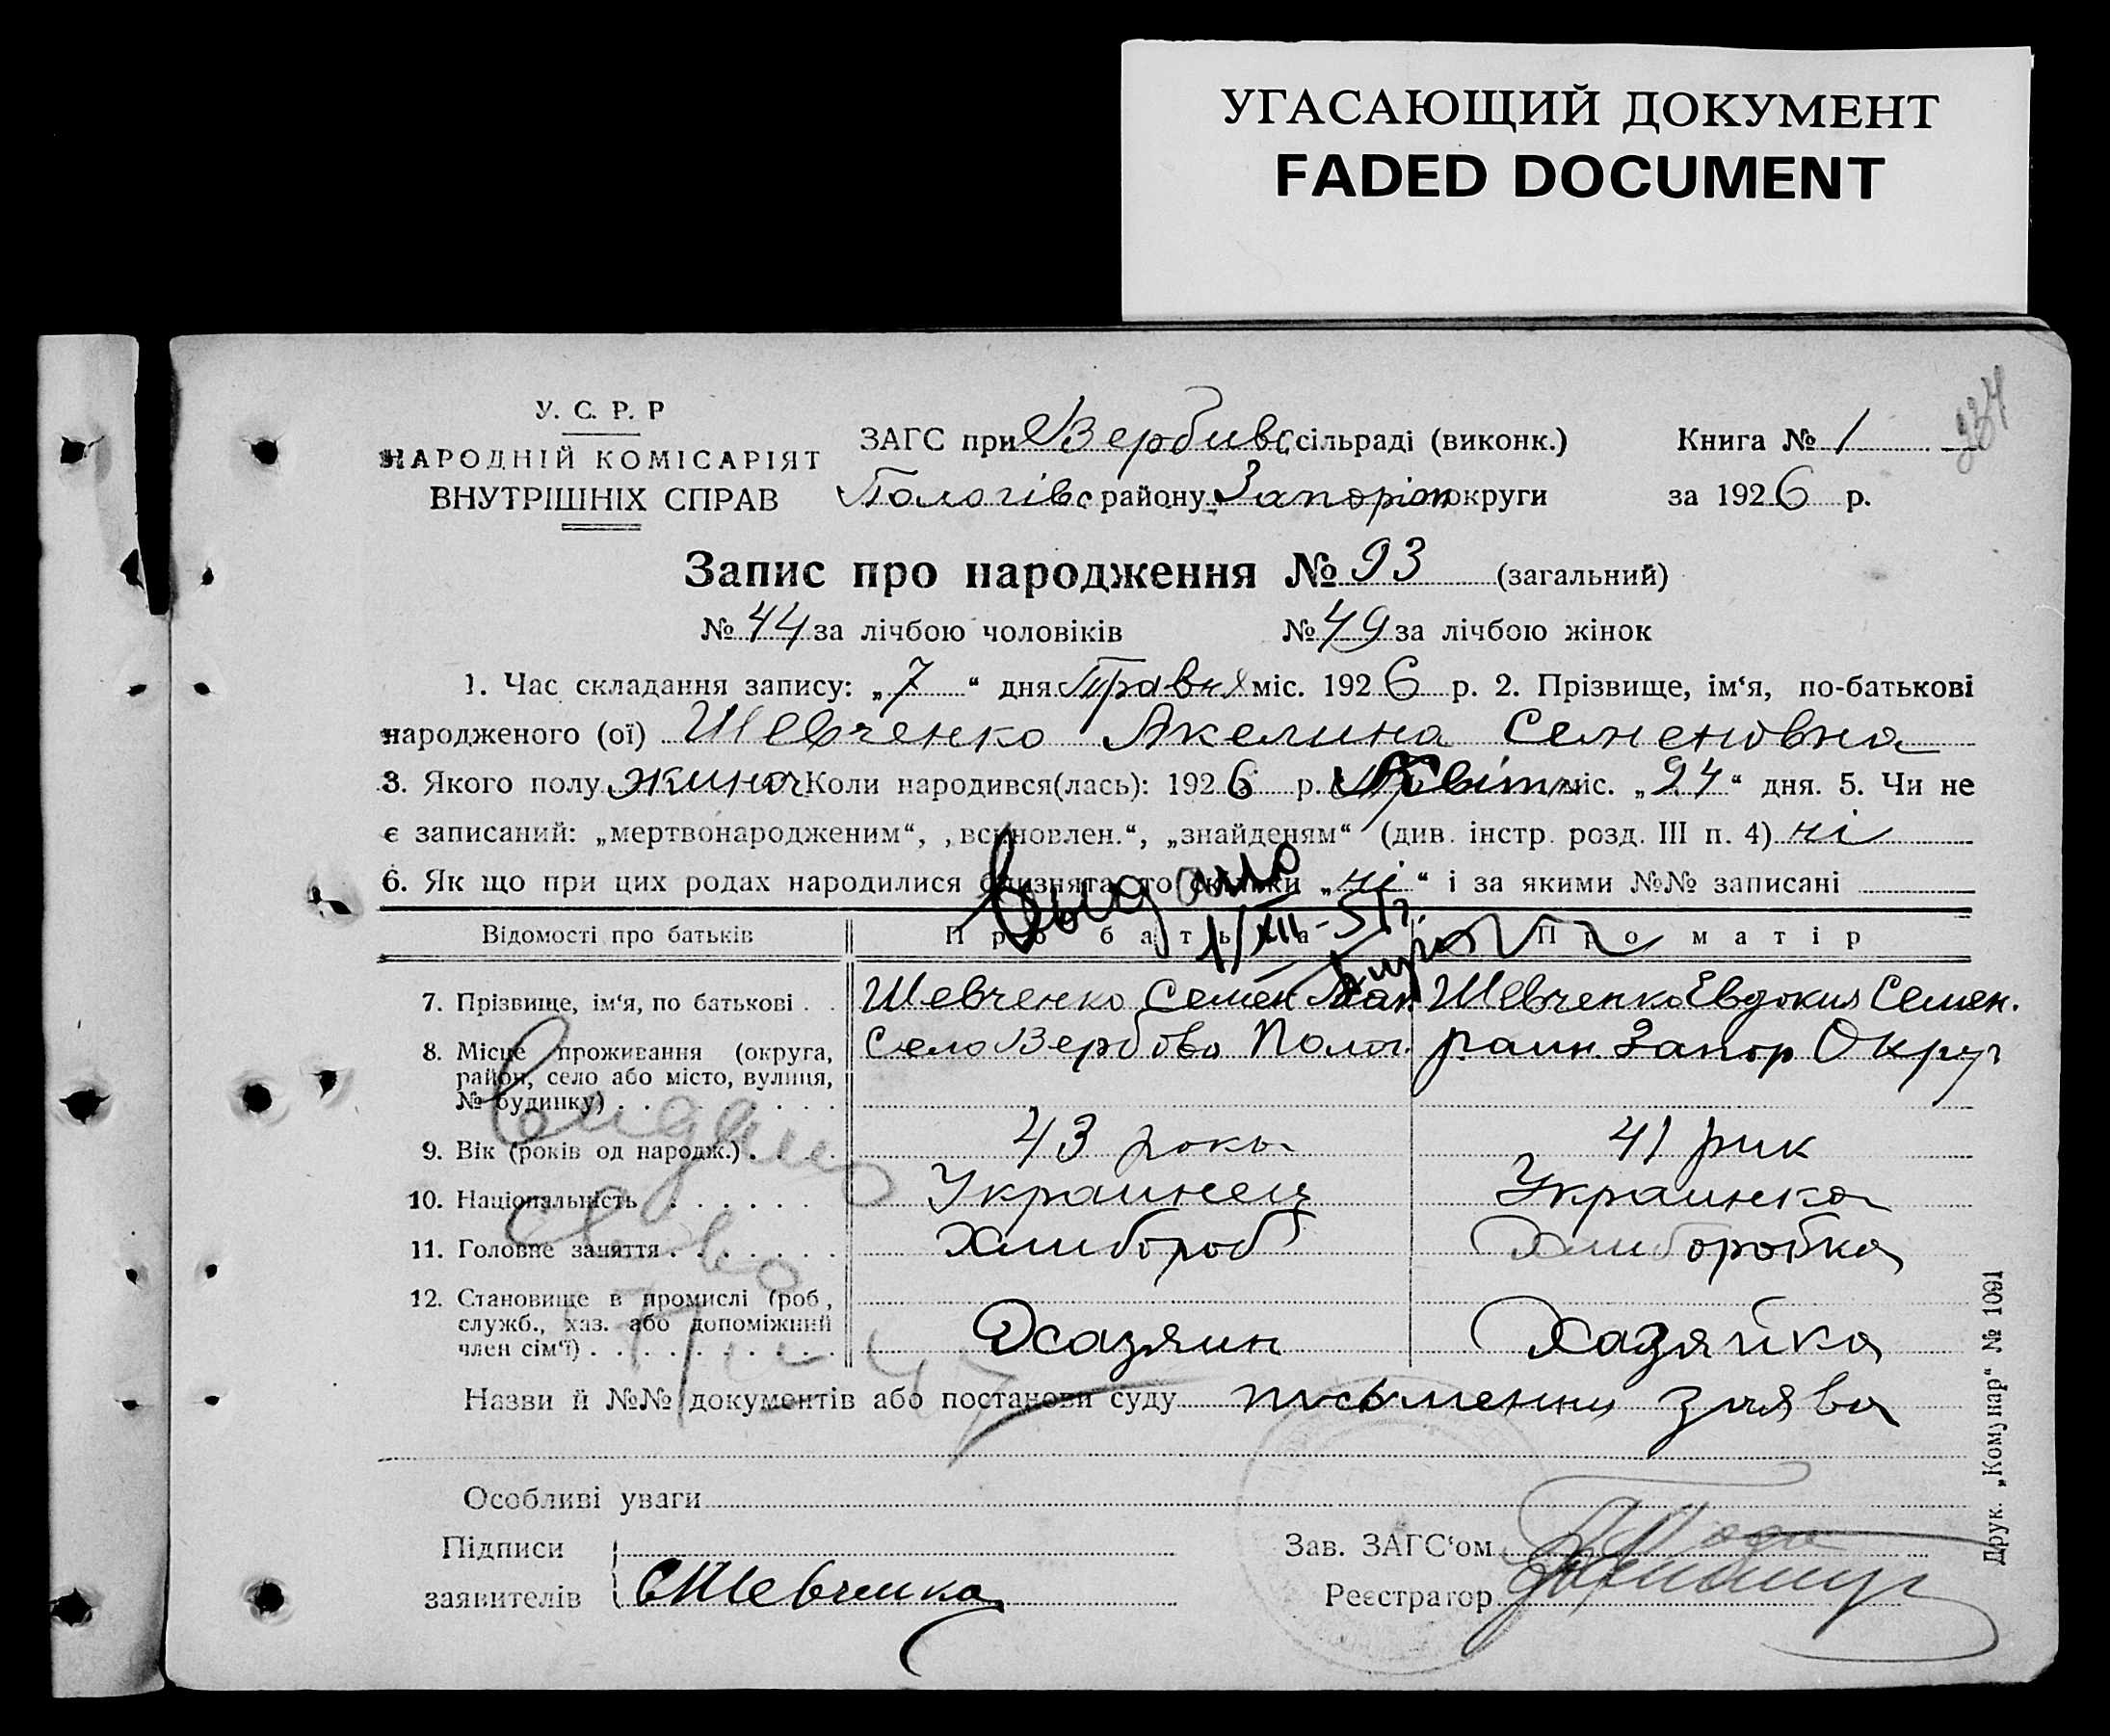 УГАСАЮЩИЙ ДОКУМЕНТ
FADED DOCUMENT
У. С. Р. Р
НАРОДНІЙ КОМІСАРІЯТ
ВНУТРІШНІХ СПРАВ
ЗАГС при Вербивс сільраді (виконк.)
Пологівс району Запоріж округи
Книга № 1
за 1926 р.
234
Запис про народження № 93 (загальний)
№ 44 за лічбою чоловіків № 49 за лічбою жінок
1. Час складання запису: „7“ дня Травня міс. 1926 р. 2. Прізвище, ім‘я, по-батькові
народженого (ої) Шевченко Акелина Семеновна
3. Якого полу жиноч Коли народився(лась): 1926 р. Квітня міс. „24“ дня. 5. Чи не
є записаний: „мертвонародженим“, „всиновлен.“, „знайденям“ (див. інстр. розд. III п. 4) ні
6. Як що при цих родах народилися близнята, то скільки „ні“ і за якими №№ записані
Выдано
1/XII-51г.
Відомості про батьків Про батька Про матір
7. Прізвище, ім‘я, по батькові . . Шевченко Семен Шевченко Евдокия Семен.
8. Місце проживання (округа, Село Вербово Полог. раин. Запор Округ
район, село або місто, вулиця,
№ будинку) . . . . . . . . .
9. Вік (років од народж.) . . . . 43 рока 41 рик
10. Національність . . . . . . Украинець Украинка
11. Головне заняття . . . . . . . Хлибороб Хлиборобка
12. Становище в промислі (роб., Хазяин Хазяйка
служб., хаз. або допоміжний
член сім‘ї) . . . . . . . . . .
Видано
Назви й №№ документів або постанови суду письменна заява
Особливі уваги
Підписи
заявителів СШевченко
Зав. ЗАГС‘ом
Реєстратор
Друк. „Комунар“ № 1091